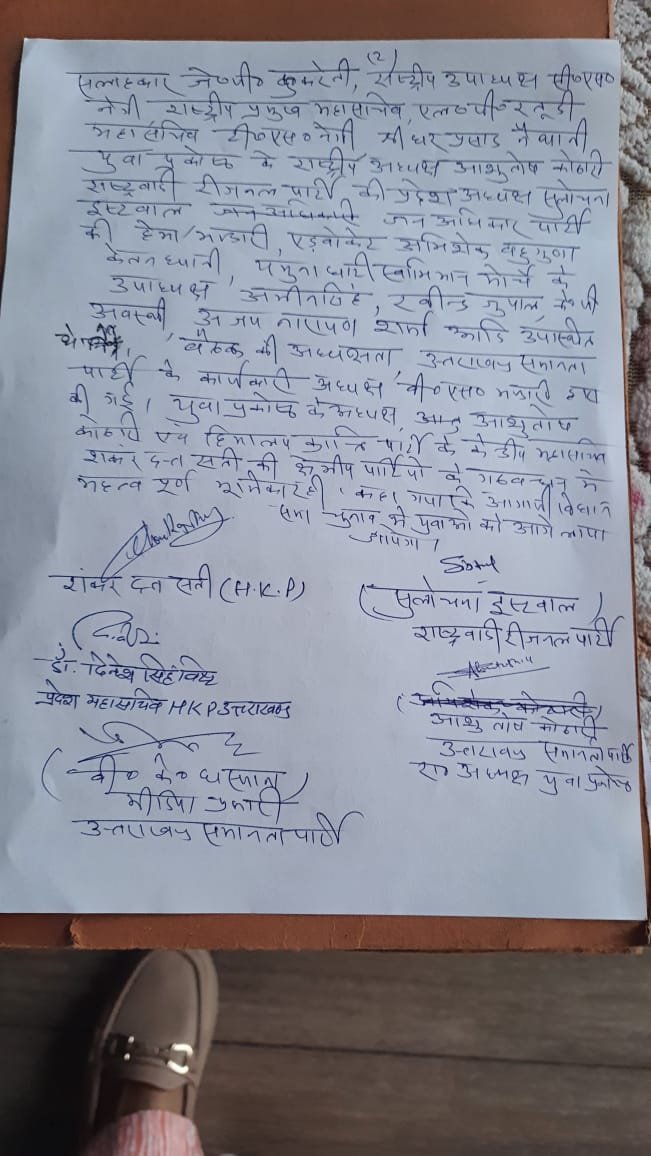 (2)
सलाहकार जे०पी० कुकरेती, राष्ट्रीय उपाध्यक्ष सी०एस०
नेगी राष्ट्रीय प्रमुख महासचिव, एल०पी० रतूडी
महासचिव टी०एस० नेगी श्रीधर प्रसाद नैथानी
युवा प्रकोष्ठ के राष्ट्रीय अध्यक्ष आशुतोष कोठारी
राष्ट्रवादी रीजनल पार्टी की प्रदेश अध्यक्ष सुलोचना
ईस्टवाल जन अधिकारी जन अधिकार पार्टी
की हेमा भण्डारी, एडवोकेट अभिशेक बहुगुणा
केतन ध्यानी, यमुना घाटी स्वाभिमान मोर्चे के
उपाध्यक्ष, अमीन सिंह, रवीन्द्र जुयाल, के०पी
अवस्थी, अजय नारायण शर्मा आदि उपस्थित
थे। बैठक की अध्यक्षता, उत्तराखण्ड समानता
पार्टी के कार्यकारी अध्यक्ष वी०एस० भण्डारी द्वारा
की गई। युवा प्रकोष्ठ के अध्यक्ष, आशुतोष
कोठारी एवं हिमालय क्रान्ति पार्टी के केन्द्रीय महासचिव
शंकर दत्त सती की क्षेत्रीय पार्टियों के गठबन्धन में
महत्वपूर्ण भूमिका रही। कहा गया कि आगामी विधान
सभा चुनाव में युवाओं को आगे लाया
जायेगा।
शंकर दत्त सती (H.K.P)
(सुलोचना ईस्टवाल)
राष्ट्रवादी रीजनल पार्टी
डॉ. दिनेश सिंह बिष्ट
प्रदेश महासचिव HKP उत्तराखण्ड
आशुतोष कोठारी
उत्तराखण्ड समानता पार्टी
रा० अध्यक्ष युवा प्रकोष्ठ
(वी० के० धस्माना)
मीडिया प्रभारी
उत्तराखण्ड समानता पार्टी